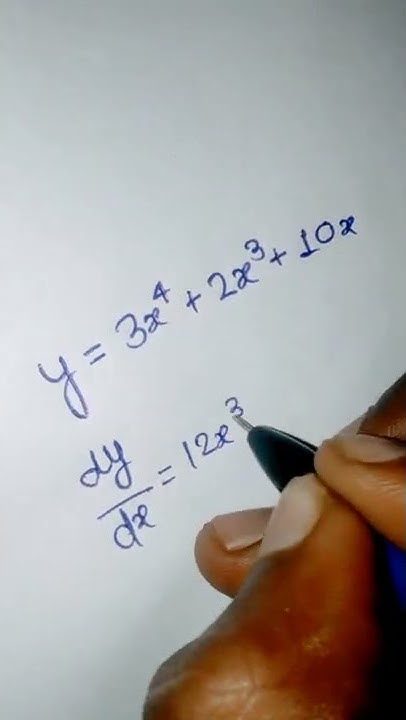 y = 3x⁴ + 2x³ + 10x
dy/dx = 12x³